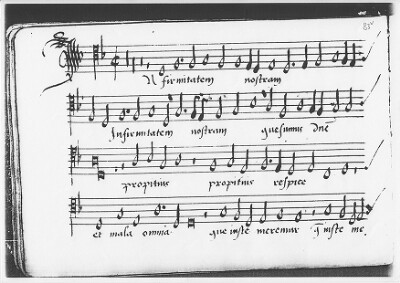 Nfirmitatem nostram
Infirmitatem nostram quesumus dne
propitius propitius respice
et mala omnia que iuste meremur iuste me